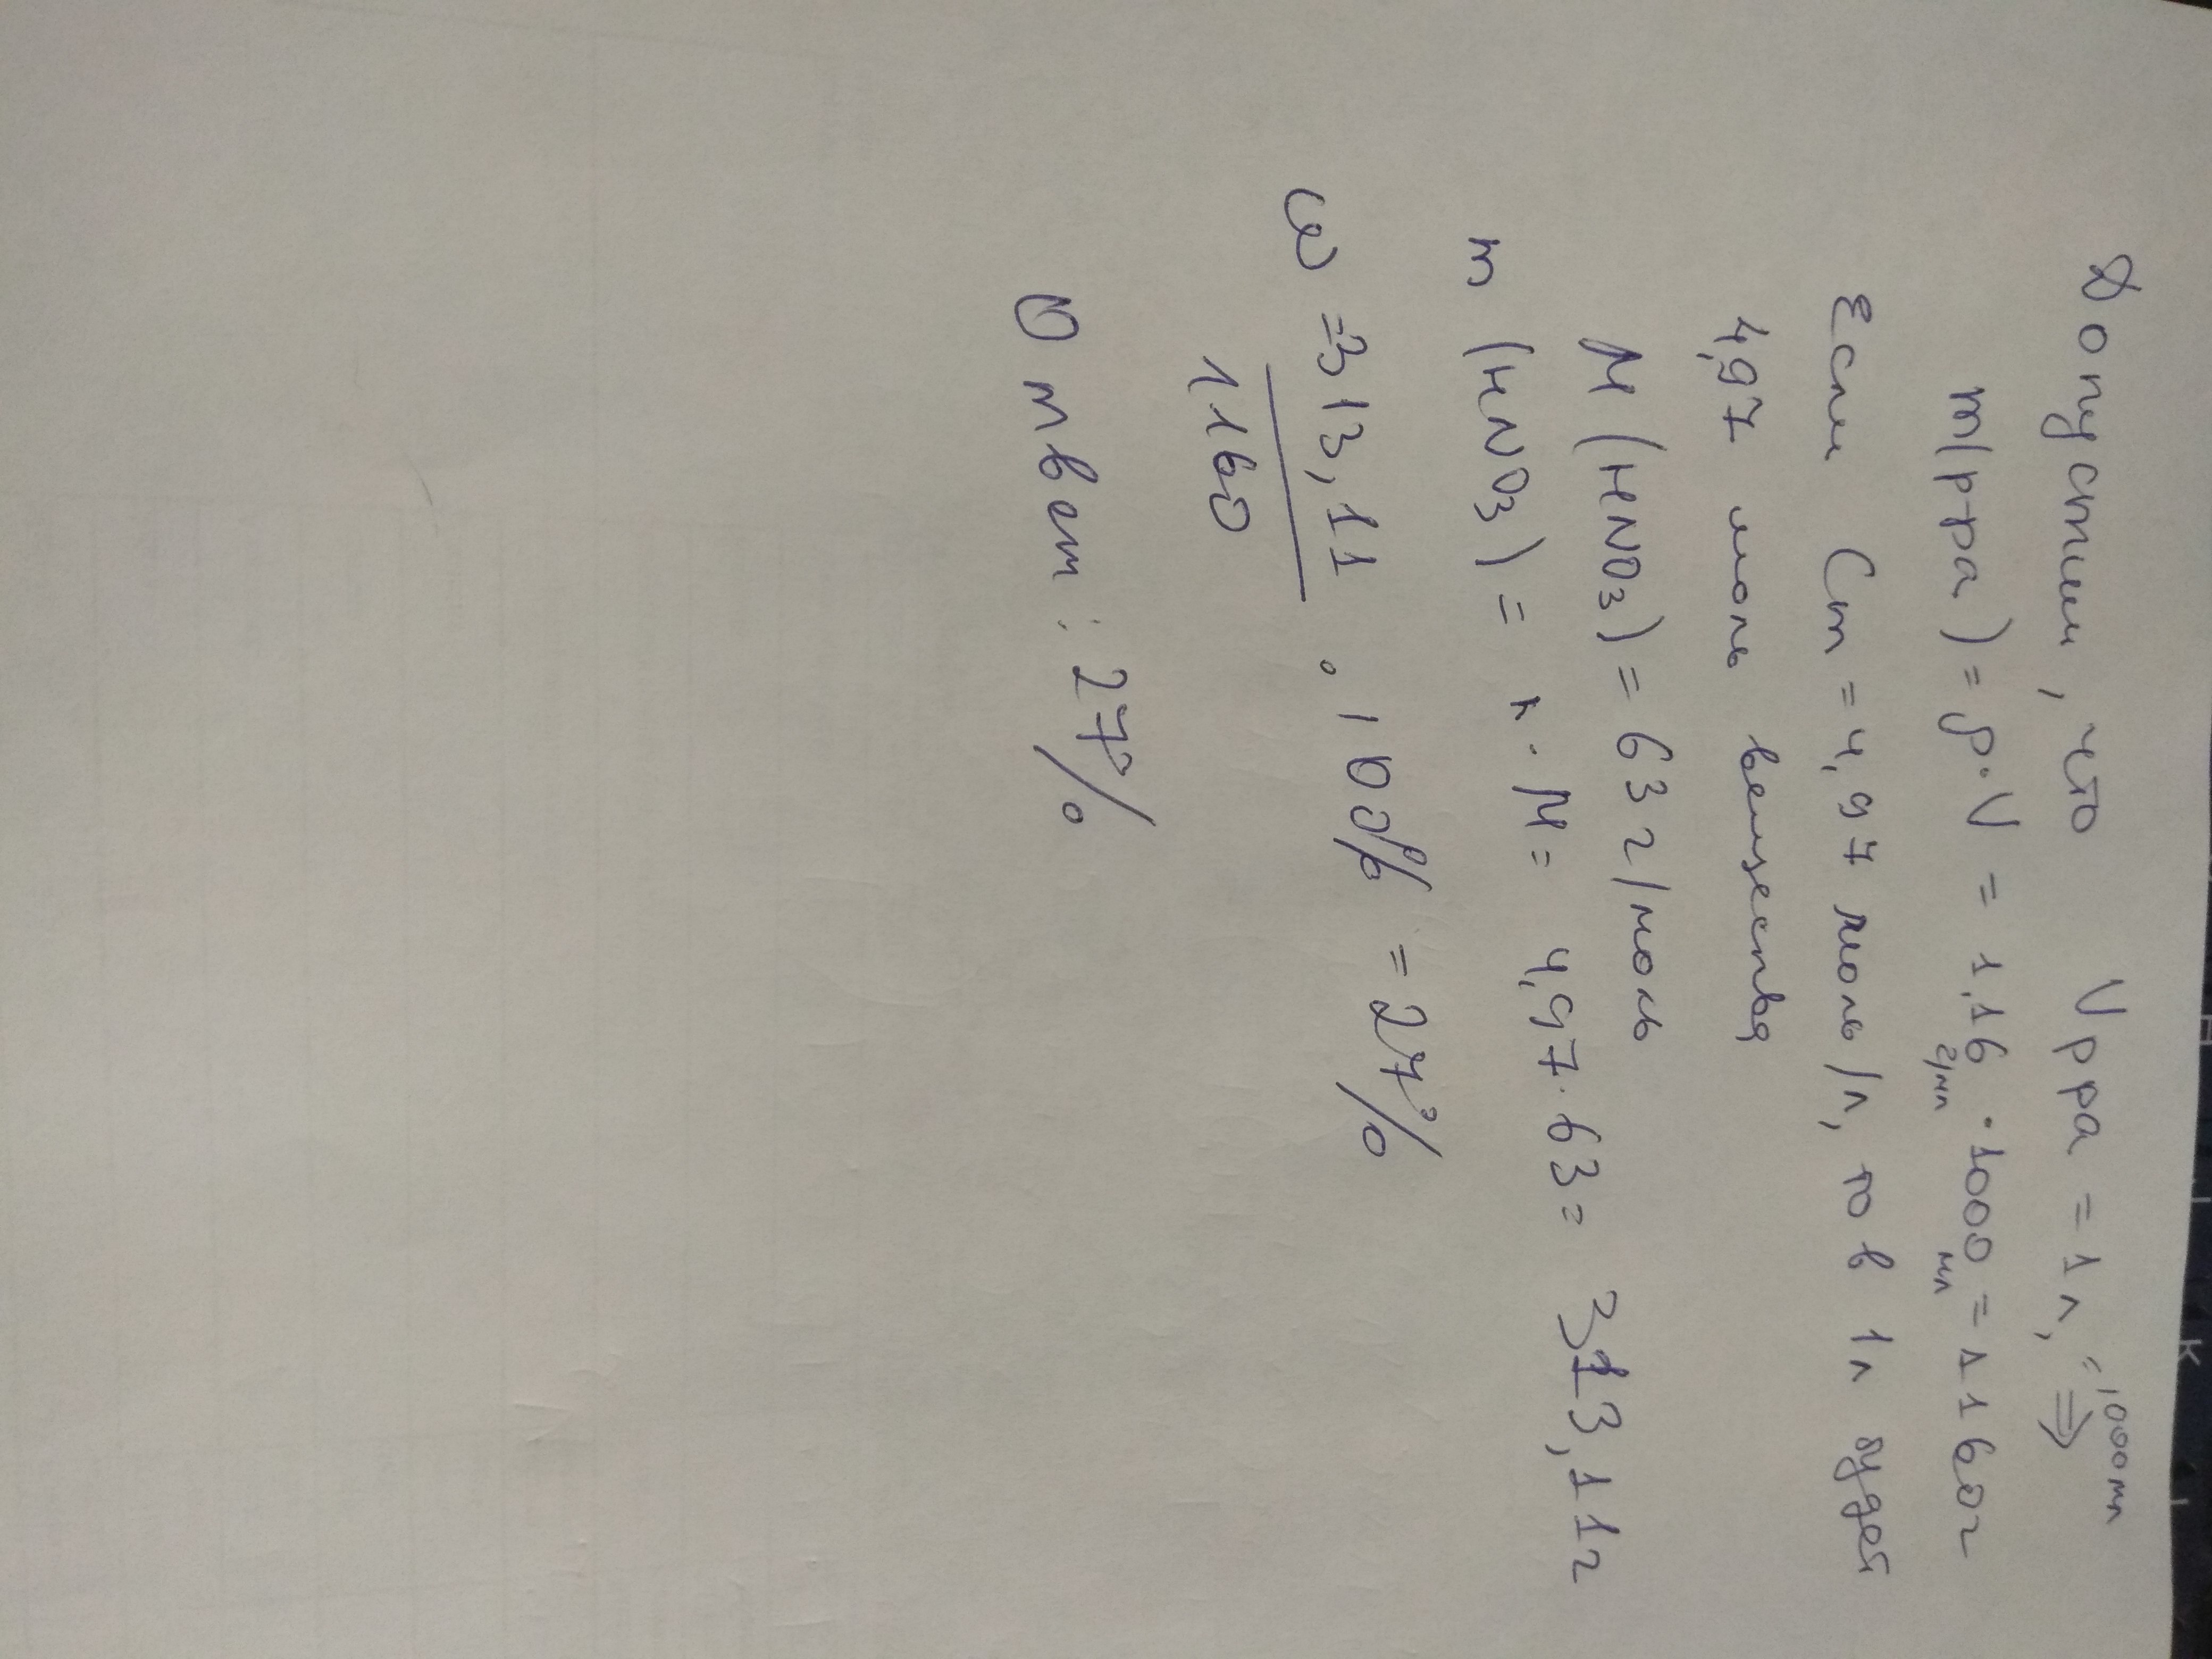 Допустим, что Vрра = 1л, = 1000мл ⇒
m(рра) = ρ·V = 1,16 г/мл · 1000 мл = 1160г
Если Cm = 4,97 моль/л, то в 1л будет
4,97 моль вещества
M(HNO3) = 63 г/моль
m(HNO3) = n·M = 4,97·63 = 313,11г
ω = 313,11 · 100% = 27%
1160
Ответ: 27%